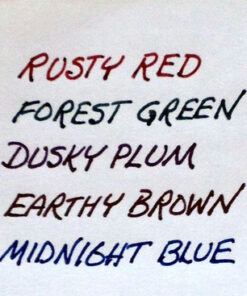 RUSTY RED
FOREST GREEN
DUSKY PLUM
EARTHY BROWN
MIDNIGHT BLUE